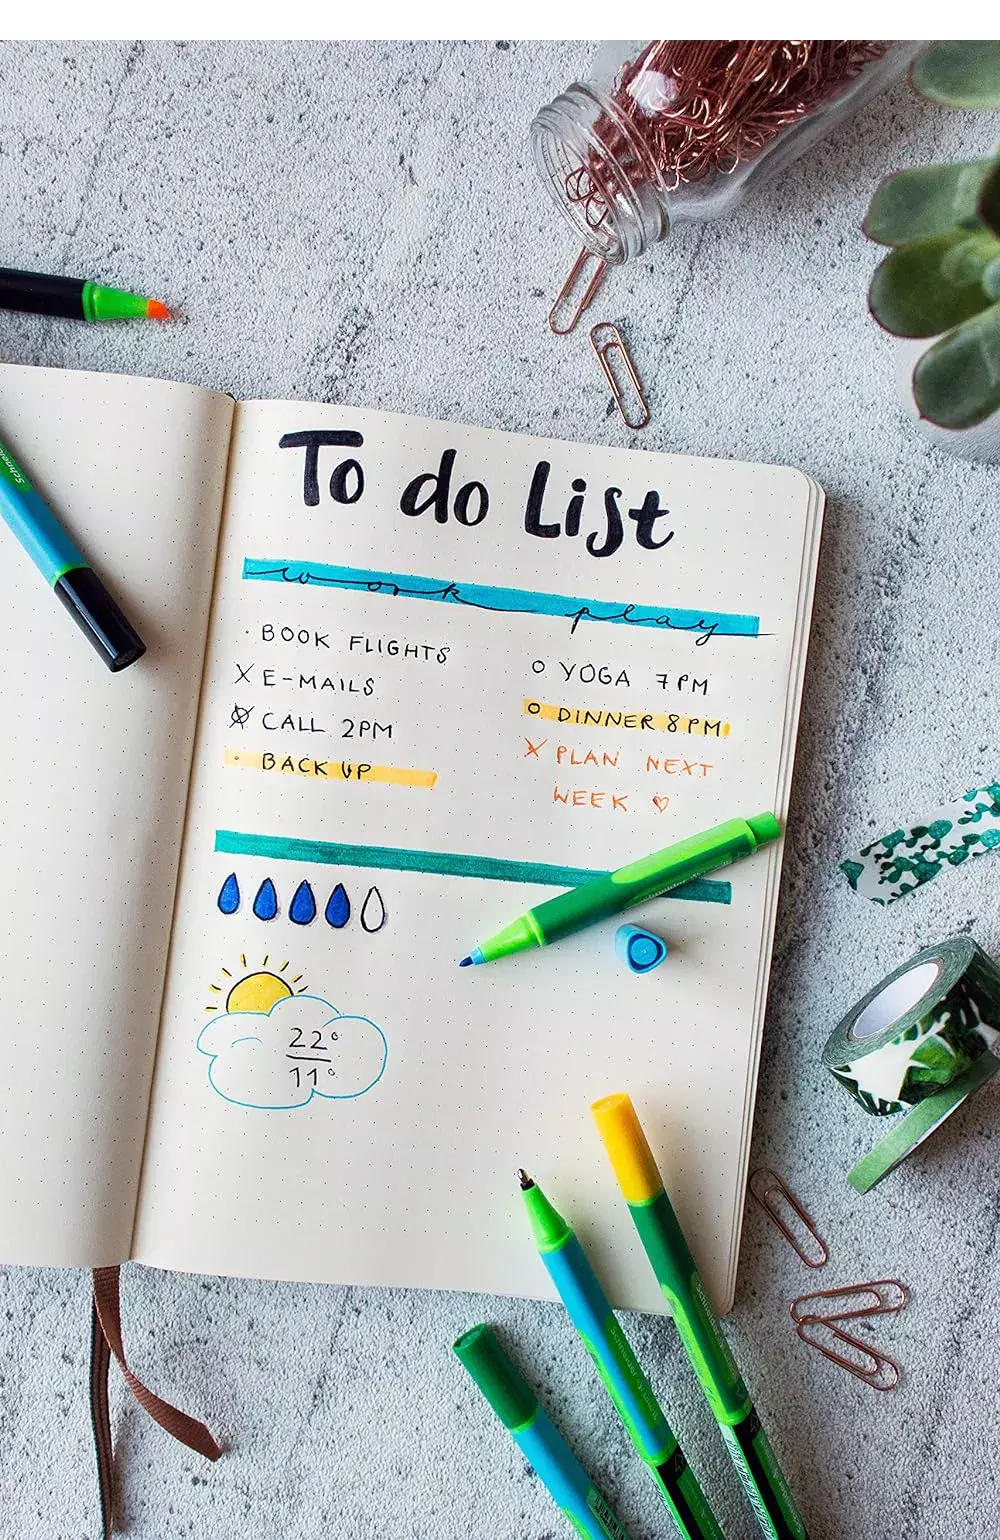 To do List
work play
· BOOK FLIGHTS
X E-MAILS
CALL 2PM
· BACK UP
O YOGA 7PM
O DINNER 8PM
X PLAN NEXT
WEEK ♡
22°
11°
Schneider